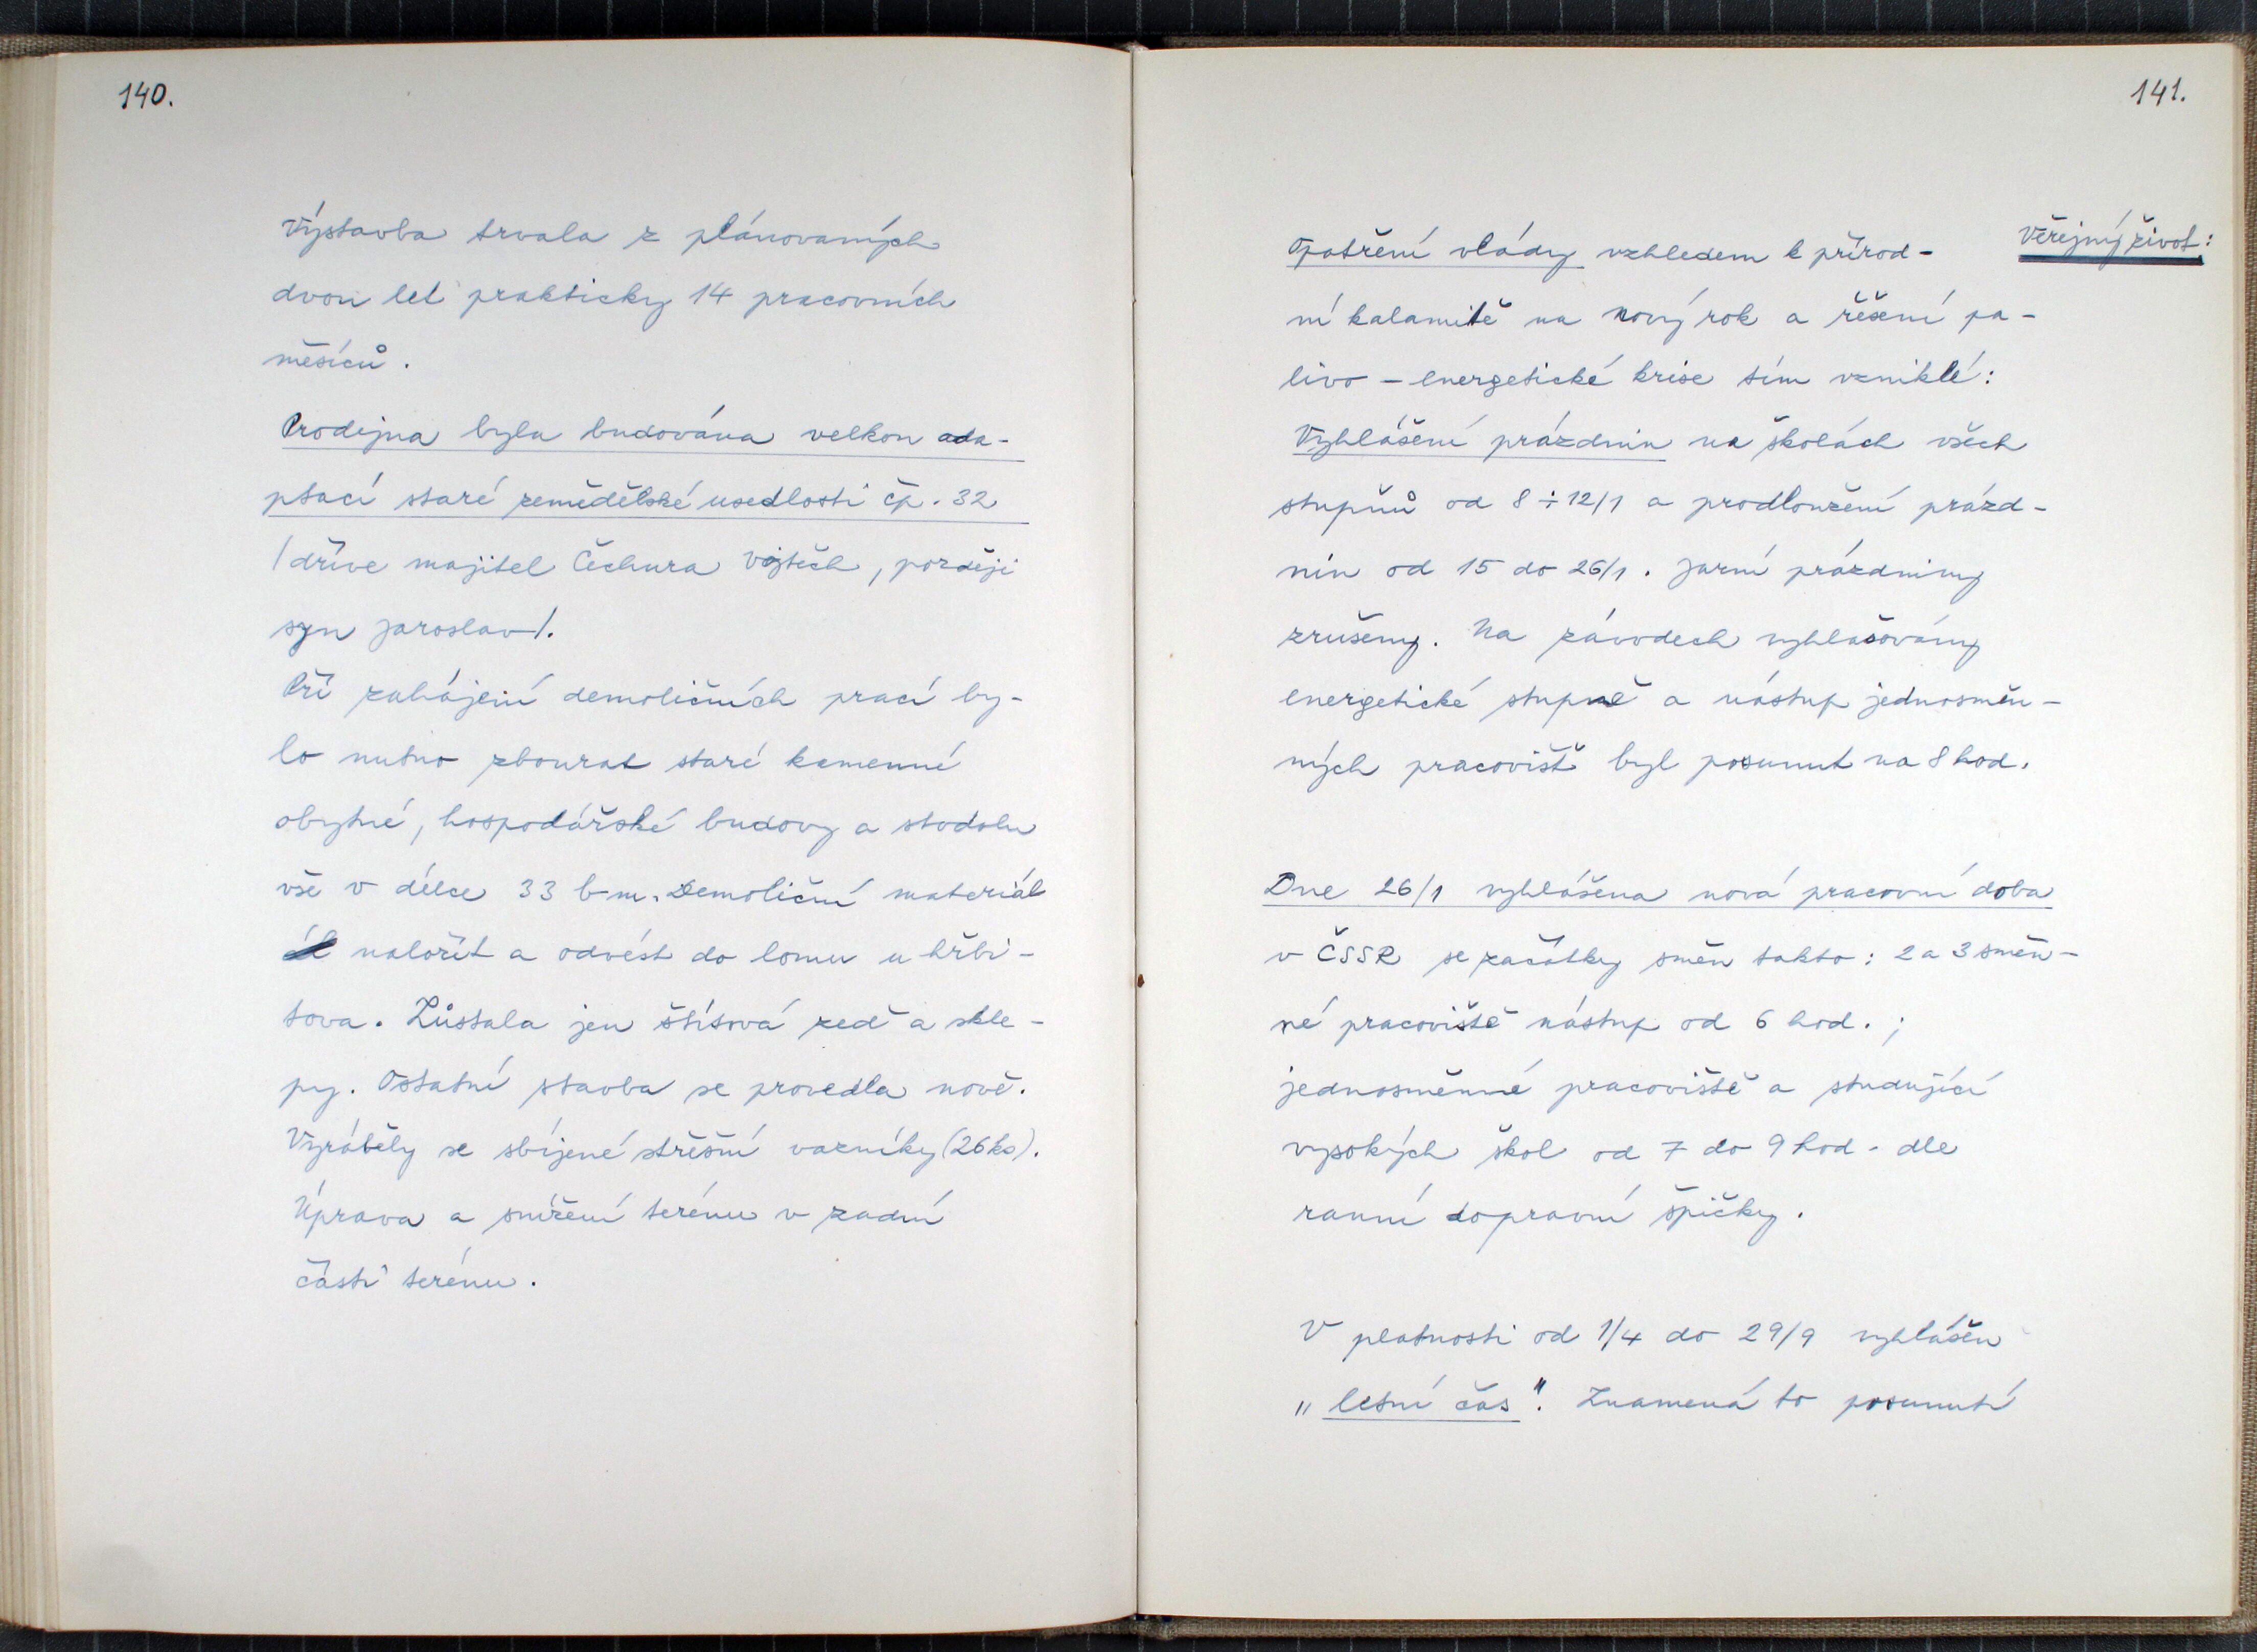 140.
Výstavba trvala z plánovaných
dvou let prakticky 14 pracovních
měsíců.
Prodejna byla budována velkou ada-
ptací staré zemědělské usedlosti čp. 32
/dříve majitel Čechura Vojtěch, později
syn Jaroslav/.
Při zahájení demoličních prací by-
lo nutno zbourat staré kamenné
obytné, hospodářské budovy a stodolu
vše v délce 33 bm. Demoliční materiál
naložit a odvést do lomu u hřbi-
tova. Zůstala jen štítová zeď a skle-
py. Ostatní stavba se provedla nově.
Vyráběly se sbíjené střešní vazníky (26 ks).
Úprava a snížení terénu v zadní
části terénu.
141.
Veřejný život:
Opatření vlády vzhledem k přírod-
ní kalamitě na nový rok a řešení pa-
livo - energetické krise tím vzniklé:
Vyhlášení prázdnin na školách všech
stupňů od 8 ÷ 12/1 a prodloužení prázd-
nin od 15 do 26/1. Jarní prázdniny
zrušeny. Na závodech vyhlašovány
energetické stupně a nástup jednosměn-
ných pracovišť byl posunut na 8 hod.
Dne 26/1 vyhlášena nová pracovní doba
v ČSSR se začátky směn takto: 2 a 3 směn-
né pracoviště nástup od 6 hod. ;
jednosměnné pracoviště a studující
vysokých škol od 7 do 9 hod. dle
ranní dopravní špičky.
V platnosti od 1/4 do 29/9 vyhlášen
„letní čas". Znamená to posunutí